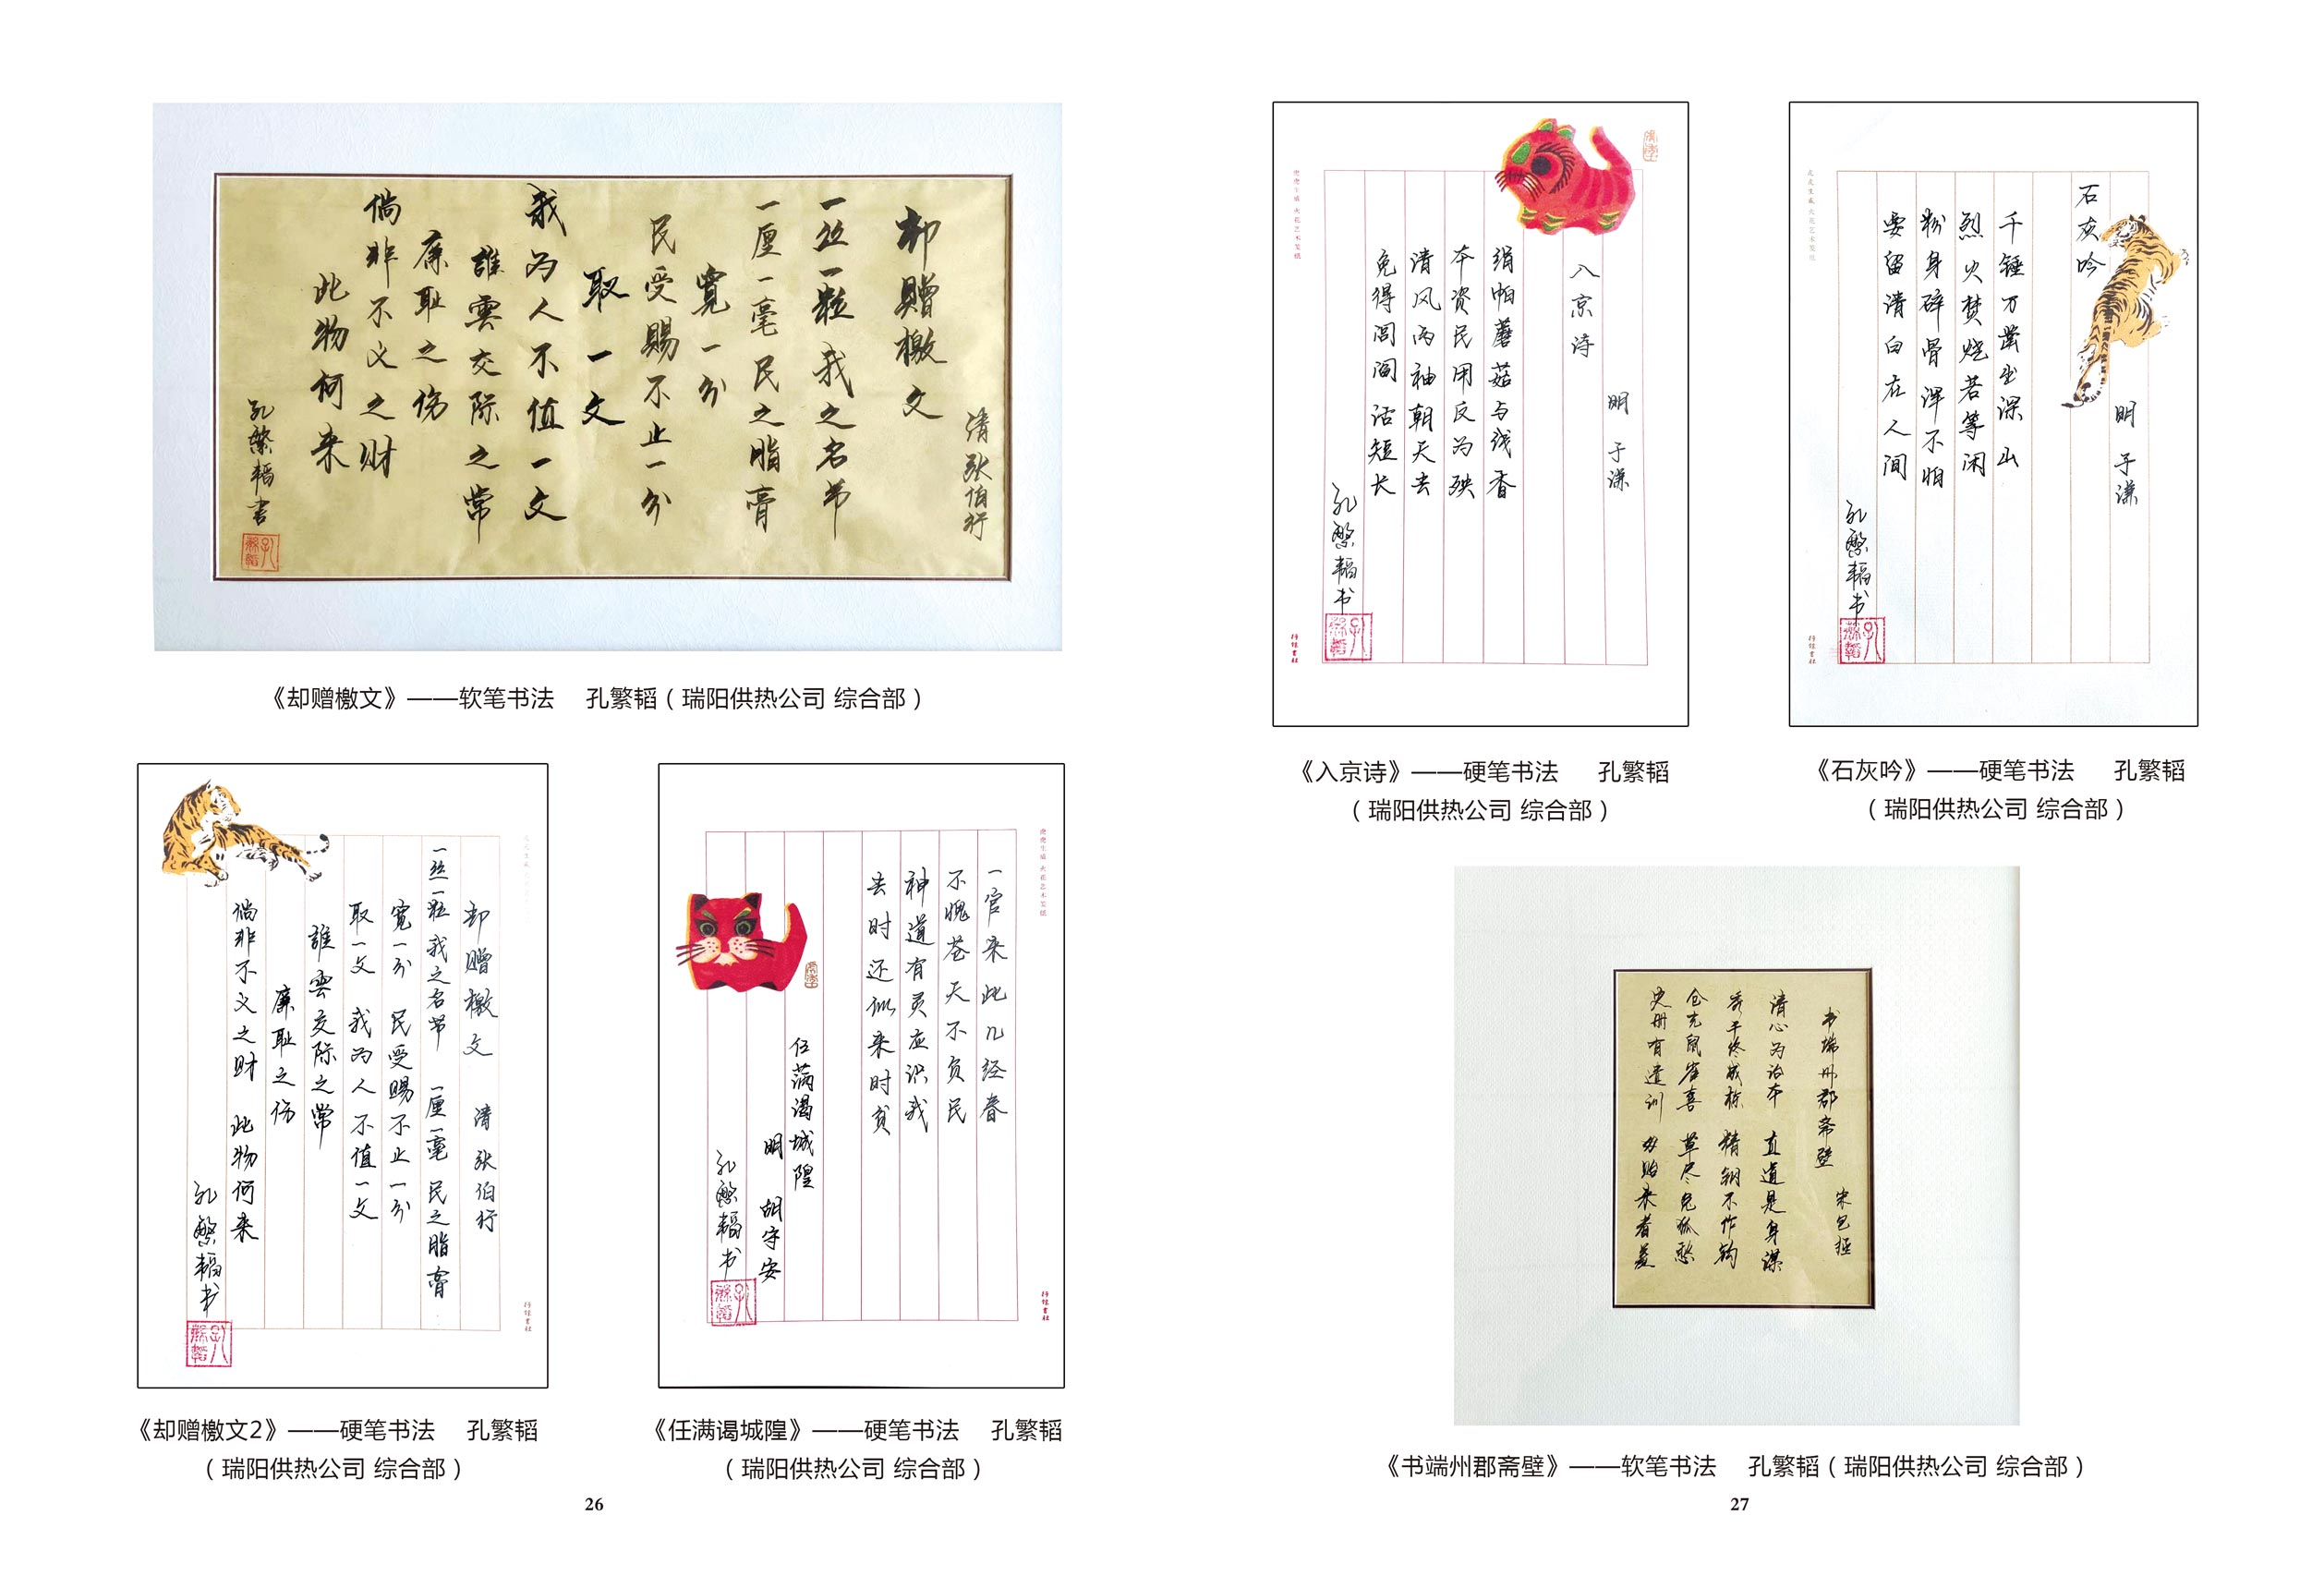 却赠檄文
清 张伯行
一丝一粒我之名节
一厘一毫民之脂膏
宽一分
民受赐不止一分
取一文
我为人不值一文
誰雲交际之常
廉耻之伤
倘非不义之财
此物何来
孔繁韬書
《却赠檄文》——软笔书法 孔繁韬（瑞阳供热公司 综合部）
却赠檄文 清 张伯行
一丝一粒 我之名节 一厘一毫 民之脂膏
宽一分 民受赐不止一分
取一文 我为人不值一文
誰雲交际之常
廉耻之伤
倘非不义之财 此物何来
孔繁韬书
《却赠檄文2》——硬笔书法 孔繁韬
（瑞阳供热公司 综合部）
虎虎生威 火花艺术笺纸
一官来此几经春
不愧苍天不负民
神道有灵应识我
去时还似来时贫
任满谒城隍
明 胡守安
孔繁韬书
《任满谒城隍》——硬笔书法 孔繁韬
（瑞阳供热公司 综合部）
26
虎虎生威 火花艺术笺纸
明 于谦
入京诗
绢帕蘑菇与线香
本资民用反为殃
清风两袖朝天去
免得闾阎话短长
孔繁韬书
《入京诗》——硬笔书法 孔繁韬
（瑞阳供热公司 综合部）
虎虎生威 火花艺术笺纸
明 于谦
石灰吟
千锤万凿出深山
烈火焚烧若等闲
粉身碎骨浑不怕
要留清白在人间
孔繁韬书
《石灰吟》——硬笔书法 孔繁韬
（瑞阳供热公司 综合部）
书端州郡斋壁 宋包拯
清心为治本 直道是身谋
秀干终成栋 精钢不作钩
仓充鼠雀喜 草尽兔狐愁
史册有遗训 毋贻来者羞
《书端州郡斋壁》——软笔书法 孔繁韬（瑞阳供热公司 综合部）
27